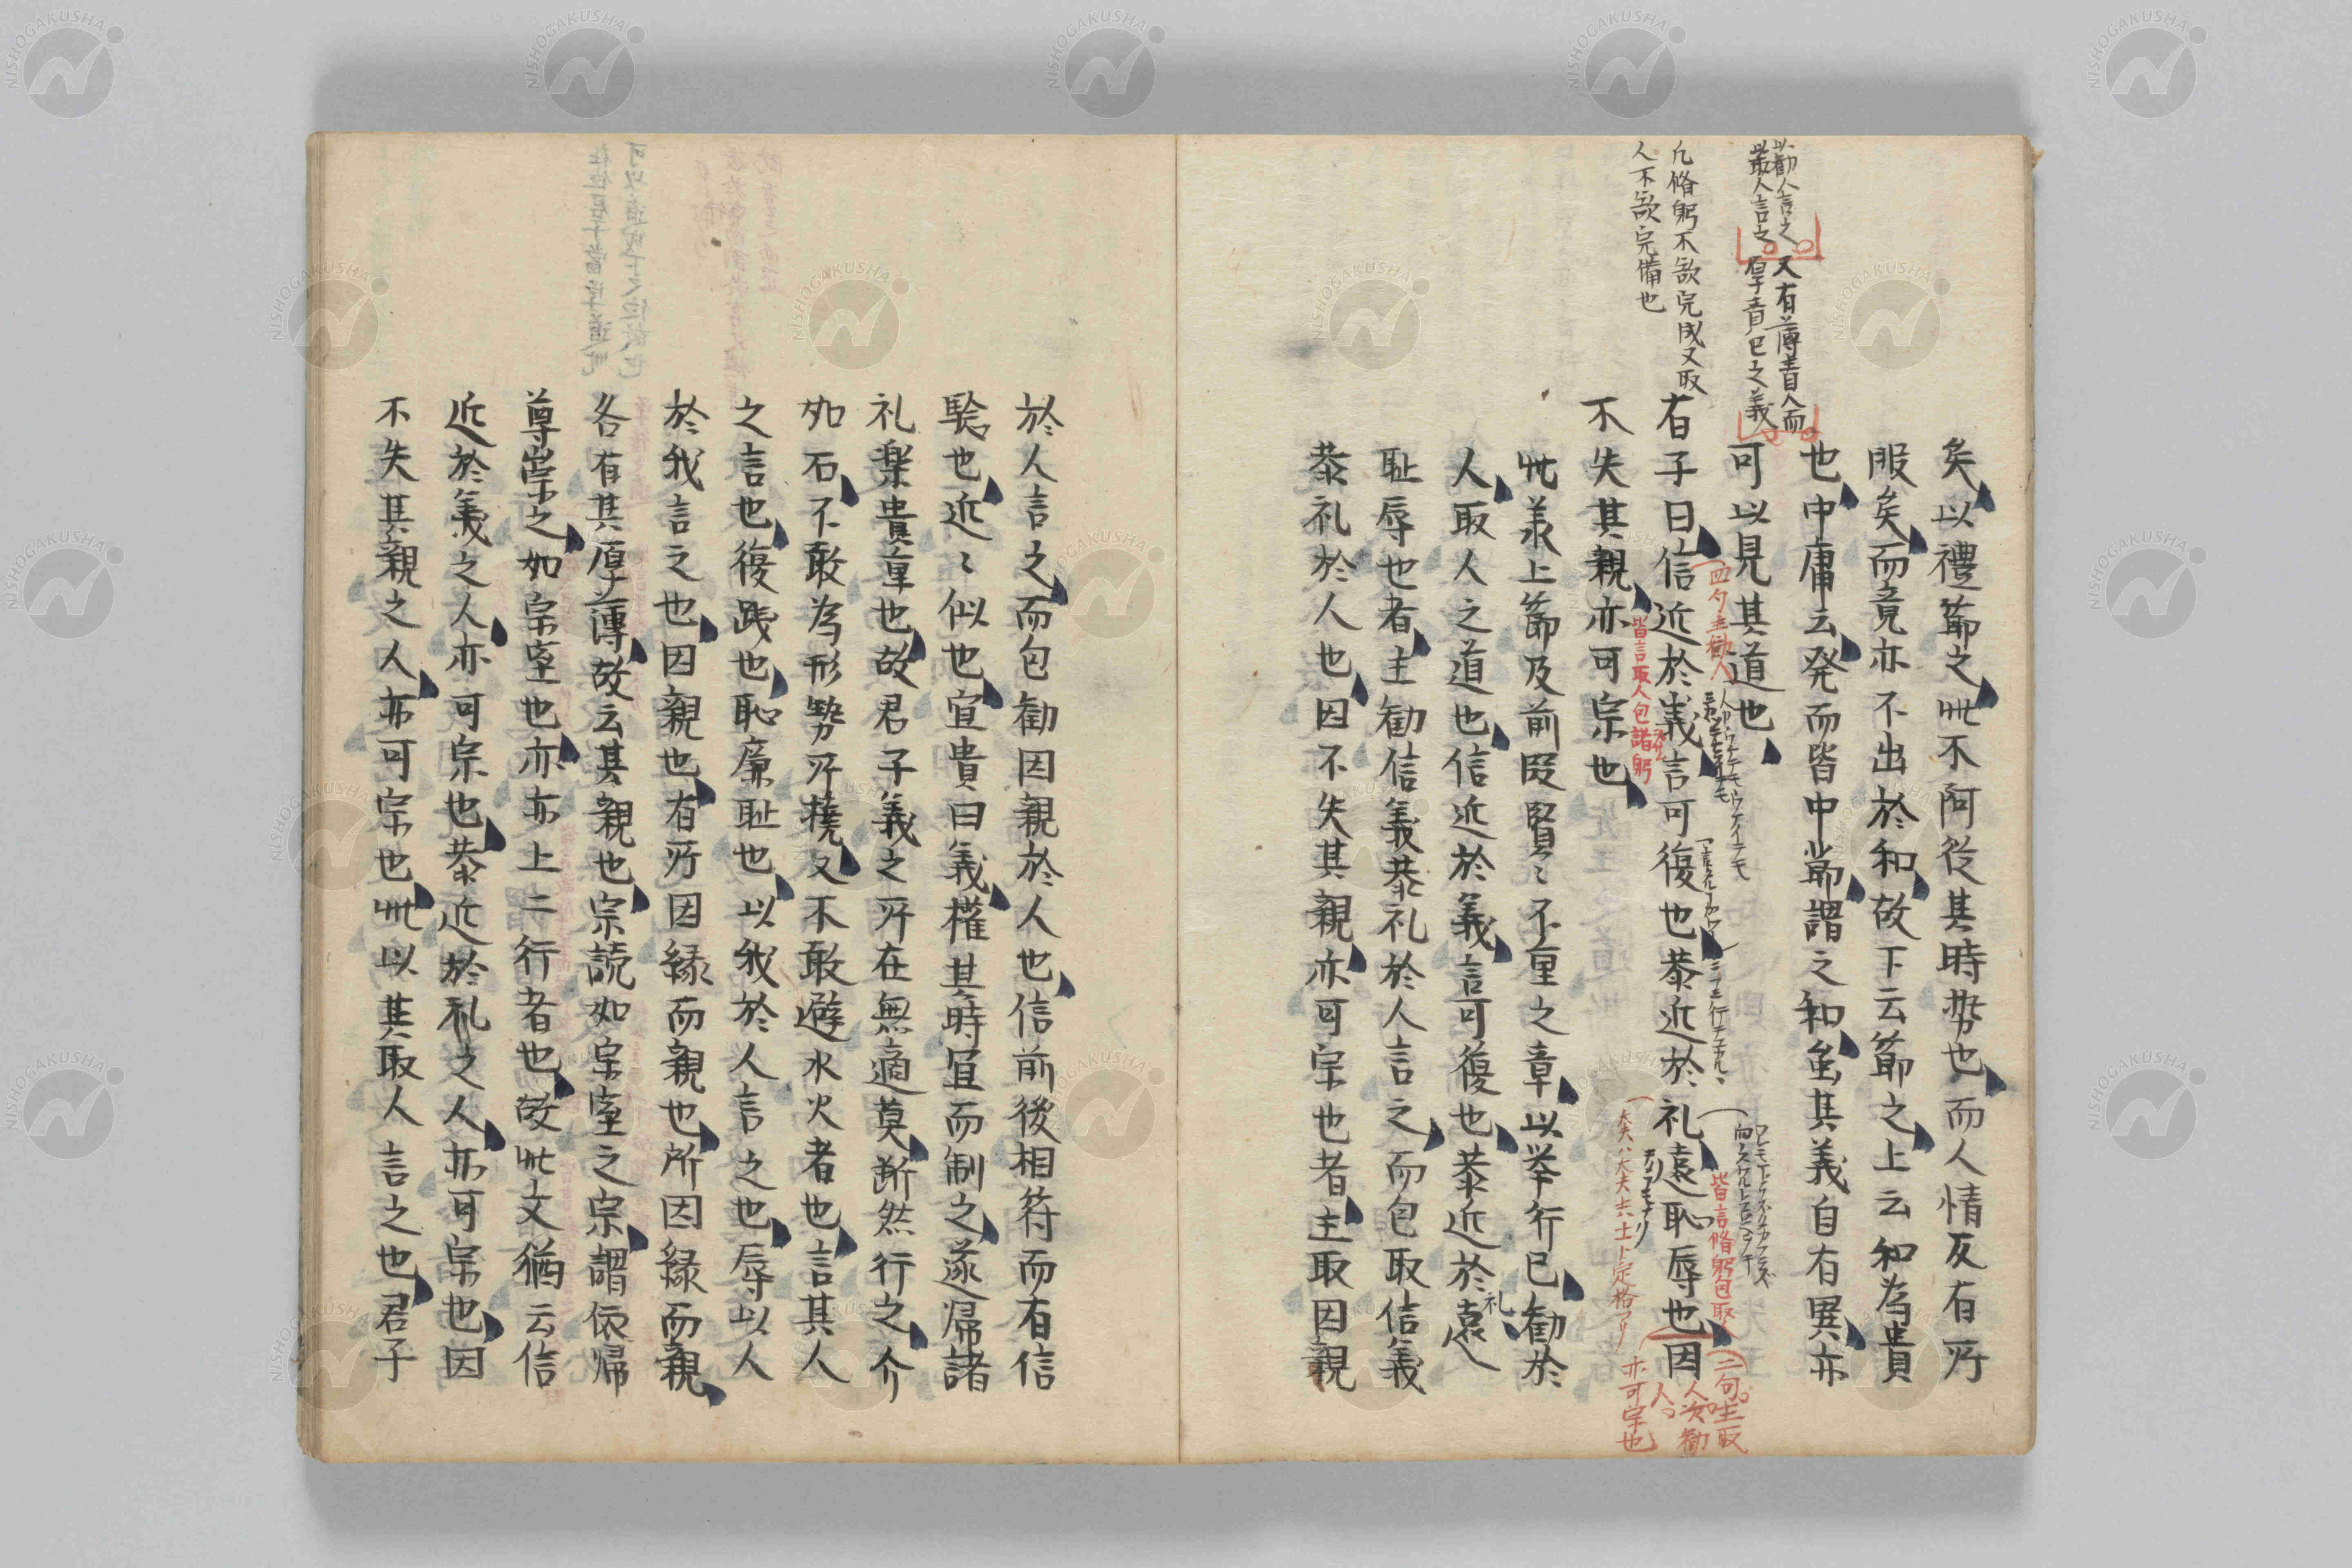 矣以禮節之此不阿従其時勢也而人情反有所
服矣而竟亦不出於和故下云節之上云和為貴
也中庸云発而皆中節謂之和虽其義自有異亦
可以見其道也
有子曰信近於義言可復也恭近於礼遠恥辱也因
不失其親亦可宗也
此承上節及前段賢〻不重之章以挙行已勧於
人取人之道也信近於義言可復也恭近於礼遠
耻辱也者主勧信義恭礼於人言之而包取信義
恭礼於人也因不失其親亦可宗也者主取因親
以勧人言之
又有薄責人而
以最人言之
厚責已之義
凡脩躬不欲完成又取
人不欲完備也
四句主勧人
皆言取人包諸躬
皆言脩躬包取人
二句主取
人次勧
人
亦可宗也
於人言之而包勧因親於人也信前後相符而有信
験也近〻似也宜貴曰義権其時宜而制之遂帰諸
礼楽貴重也故君子義之所在無適莫断然行之介
如石不敢為形勢所撓又不敢避水火者也言其人
之言也復践也恥廉耻也以我於人言之也辱以人
於我言之也因親也有所因縁而親也所因縁而親
各有其厚薄故云其親也宗読如宗室之宗謂依帰
尊崇之如宗室也亦亦上二行者也故此文猶云信
近於義之人亦可宗也恭近於礼之人亦可宗也因
不失其親之人亦可宗也此以其取人言之也君子
NISHOGAKUSHA